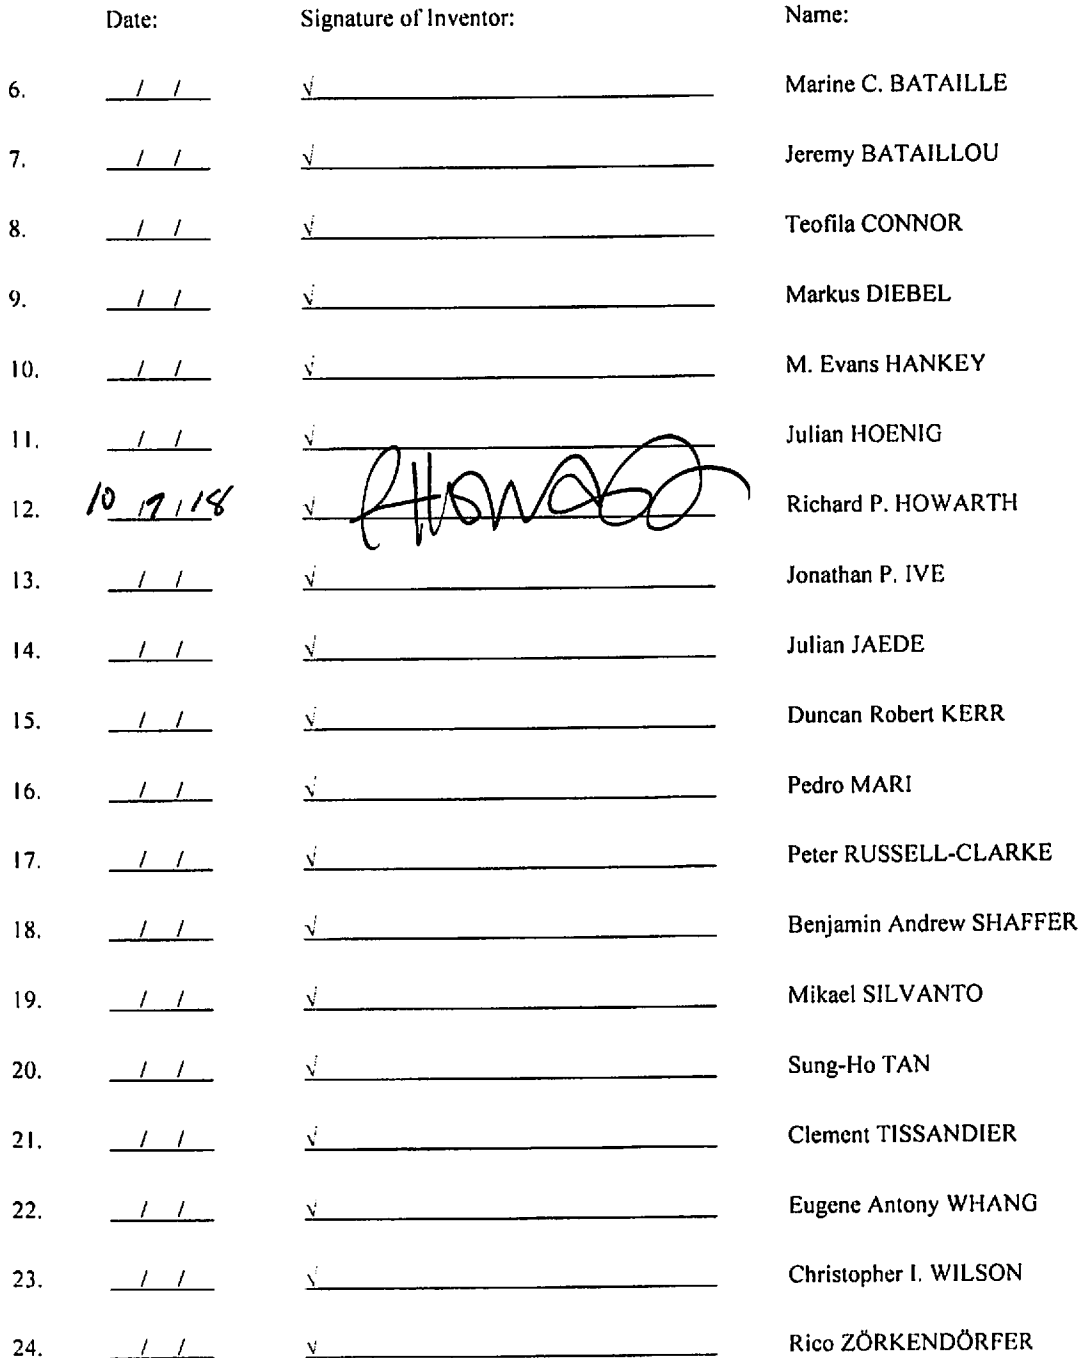 Date: Signature of Inventor: Name:
6. / / √ Marine C. BATAILLE
7. / / √ Jeremy BATAILLOU
8. / / √ Teofila CONNOR
9. / / √ Markus DIEBEL
10. / / √ M. Evans HANKEY
11. / / √ Julian HOENIG
12. 10 / 7 / 18 √ Richard P. HOWARTH
13. / / √ Jonathan P. IVE
14. / / √ Julian JAEDE
15. / / √ Duncan Robert KERR
16. / / √ Pedro MARI
17. / / √ Peter RUSSELL-CLARKE
18. / / √ Benjamin Andrew SHAFFER
19. / / √ Mikael SILVANTO
20. / / √ Sung-Ho TAN
21. / / √ Clement TISSANDIER
22. / / √ Eugene Antony WHANG
23. / / √ Christopher I. WILSON
24. / / √ Rico ZÖRKENDÖRFER